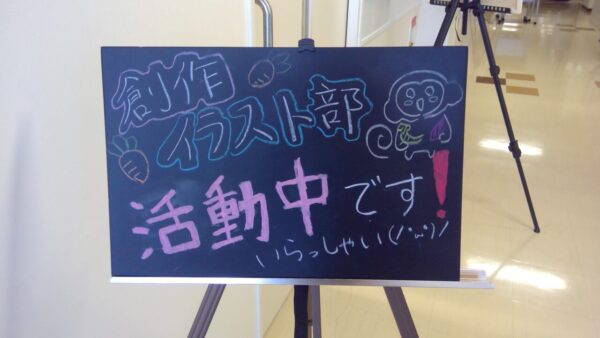 創作
イラスト部
活動中です!
いらっしゃい(/・ω・)/